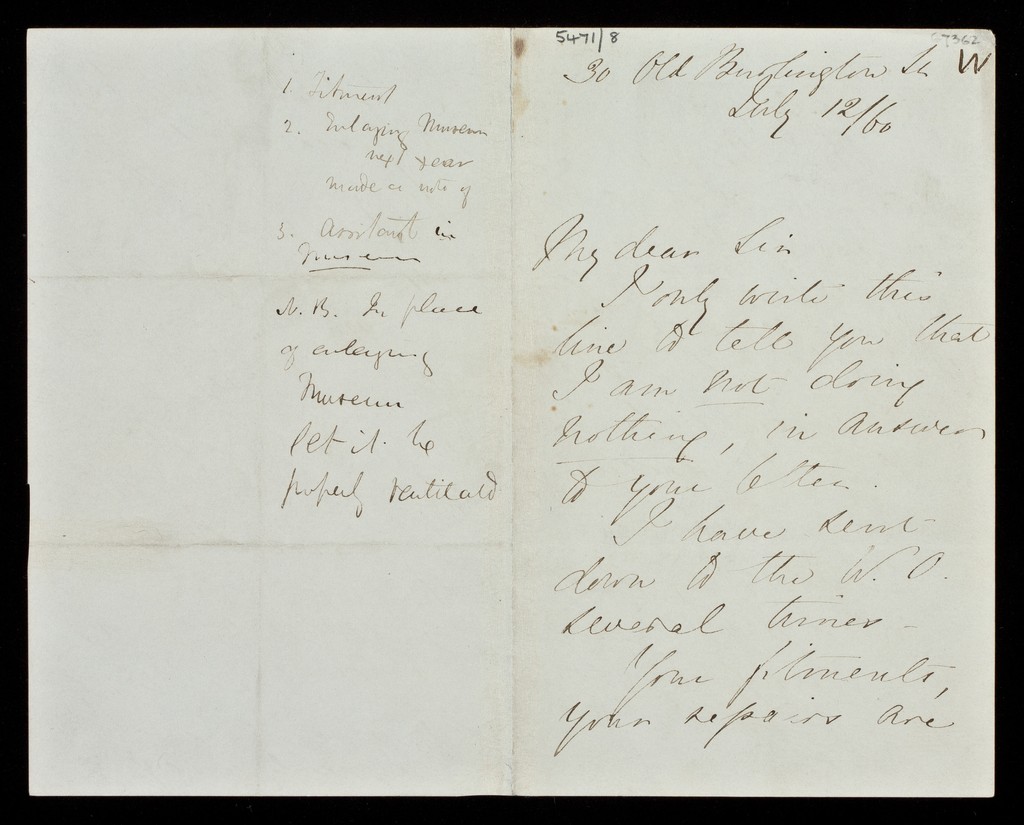 1. Fitment
2. Enlarging Museum
next year
made a note of
3. Assistant in
Museum
N.B. In place
of enlarging
Museum
let it be
properly ventilated
5471/8
67362
W
30 Old Burlington St
July 12/60
My dear Sir
I only write this
line to tell you that
I am not doing
nothing, in answer
to your letter.
I have sent
down to the W.O.
several times -
Your fitments,
your repairs are